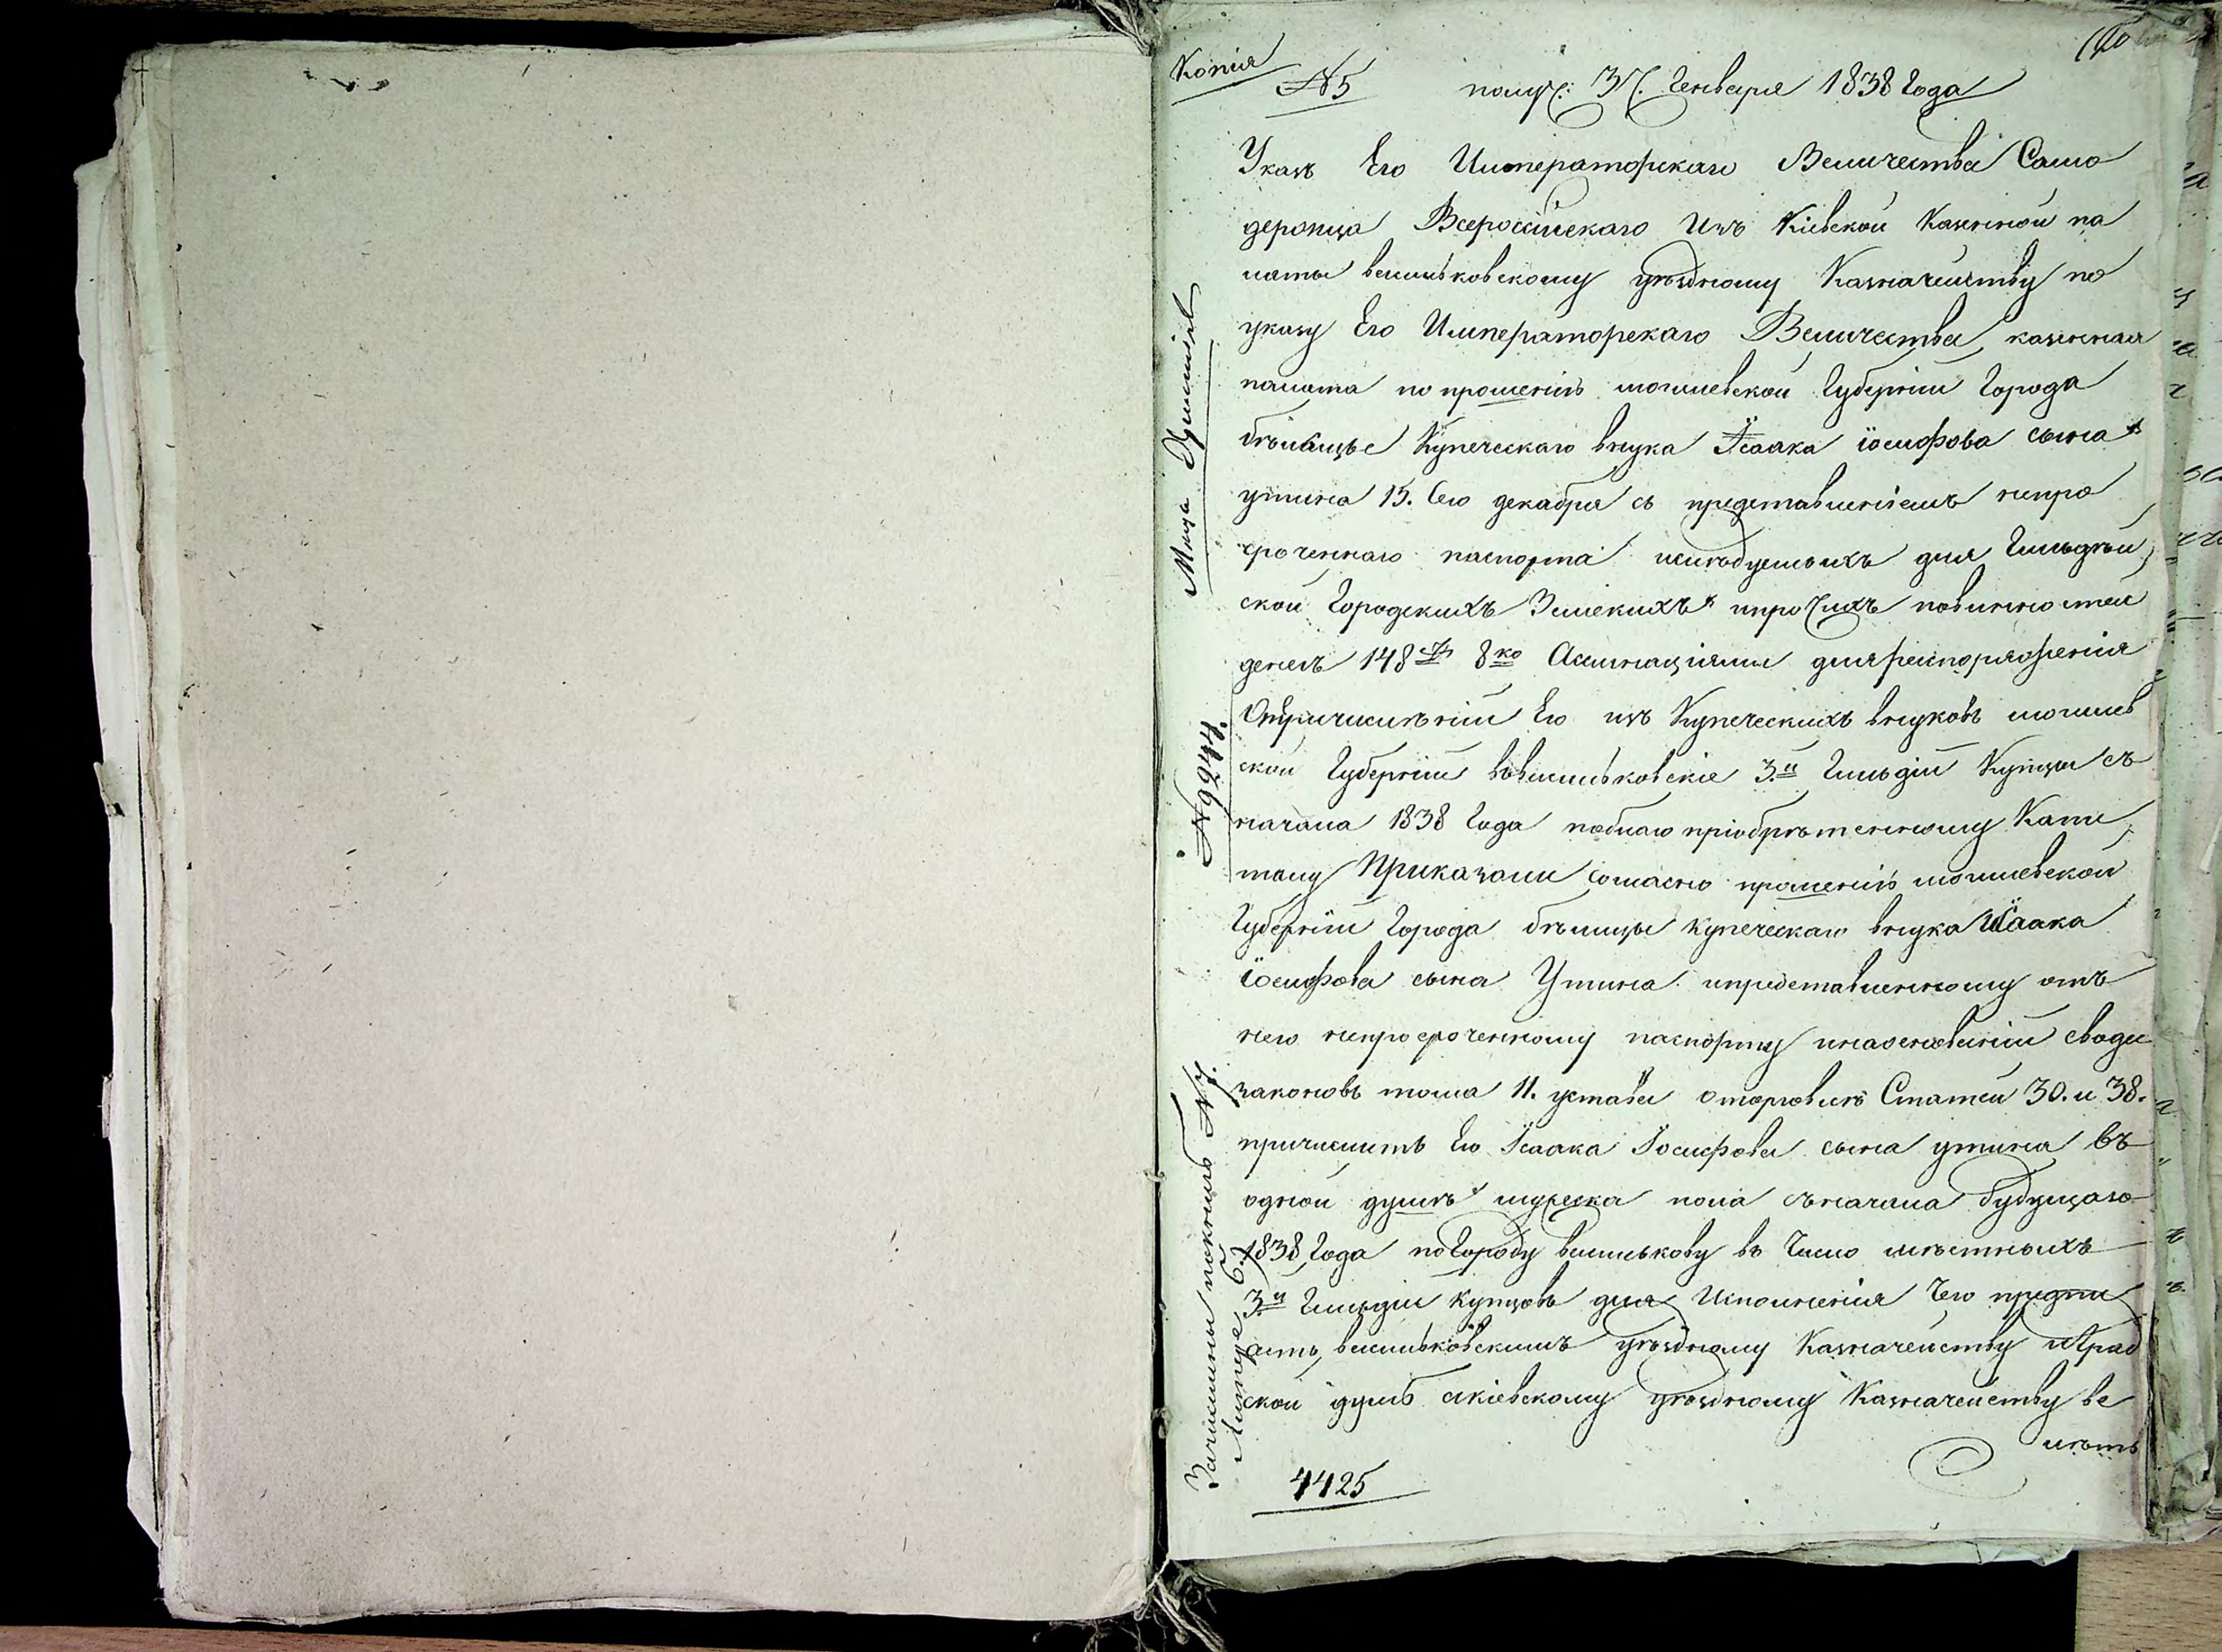 Копія
№ 5 получ: 3 Генваря 1838 Года
Указъ Его Императорскаго Величества Само
держца Всероссійскаго Изъ Кіевской Казенной па
латы васильковскому уѣздному Казначейству по
указу Его Императорскаго Величества казенная
палата по прошенію могилевской Губерніи Города
бѣлицы Купеческаго внука Ісаака іосифова сына
утина 15. Сего декабря съ представленіемъ непро
сроченнаго паспорта слѣдуемыхъ для Гильдѣй
ской ГородскихъЗемскихъ ипрочихъ повинностей
денегъ 148 8 ко Ассигнаціями дляраспоряженія
Опричисленіи Его изъ Купеческихъ внуковъ могилев
ской Губерніи ввасильковскіе 3.й Гильдіи Купцы съ
начала 1838 Года пообъяв пріобрѣтенному Капи
талу Приказали согласно прошенію могилевской
Губерніи Города бѣлицы купеческаго внука Исаака
іосифова сына Утина ипредставленному отъ
него непросроченному паспорту инаоснованіи свода
законовъ тома 11. устава оторговлѣ Статей 30. и 38.
причислить Его Ісаака Іосифова сына утина въ
одной душѣ мужеска пола съначала будущаго
1838 Года поГороду василькову въ Число мѣстныхъ
3й Гильдіи Купцовъ для Исполненія Чего предпи
сать, васильковскимъ уѣздному Казначейству иГрад
ской думѣ акіевскому уѣздному Казначейству ве
лѣть
4425
№ 9244.
Зачислены покнигѣ № 7.
Литере Б.